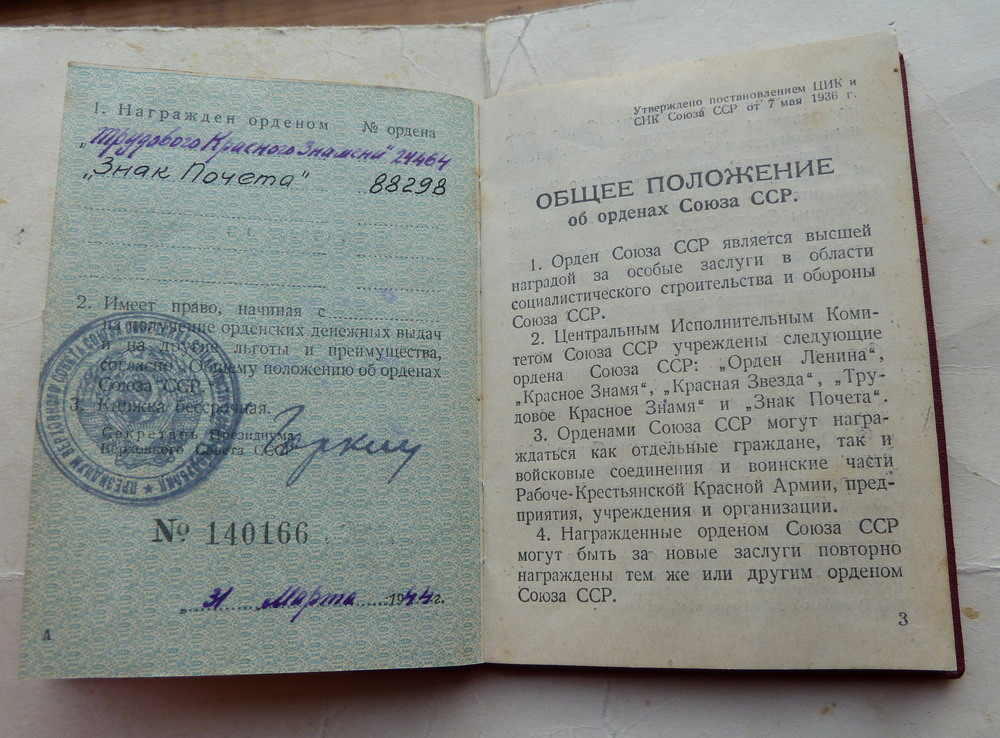 1. Награжден орденом № ордена
„Трудового Красного Знамени" 24464
„Знак Почета" 88298
2. Имеет право, начиная с
на получение орденских денежных выдач
и на другие льготы и преимущества,
согласно „Общему положению об орденах
Союза ССР".
3. Книжка бессрочная.
Секретарь Президиума
Верховного Совета СССР
№ 140166
„31 Марта 1944 г.
А
Утверждено постановлением ЦИК и
СНК Союза ССР от 7 мая 1936 г.
ОБЩЕЕ ПОЛОЖЕНИЕ
об орденах Союза ССР.
1. Орден Союза ССР является высшей
наградой за особые заслуги в области
социалистического строительства и обороны
Союза ССР.
2. Центральным Исполнительным Коми-
тетом Союза ССР учреждены следующие
ордена Союза ССР: „Орден Ленина",
„Красное Знамя", „Красная Звезда", „Тру-
довое Красное Знамя" и „Знак Почета".
3. Орденами Союза ССР могут награ-
ждаться как отдельные граждане, так и
войсковые соединения и воинские части
Рабоче-Крестьянской Красной Армии, пред-
приятия, учреждения и организации.
4. Награжденные орденом Союза ССР
могут быть за новые заслуги повторно
награждены тем же или другим орденом
Союза ССР.
3